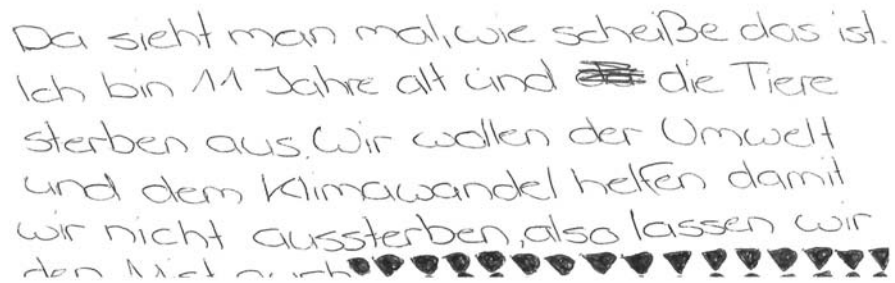 Da sieht man mal, wie scheiße das ist.
Ich bin 11 Jahre alt und die Tiere
sterben aus. Wir wollen der Umwelt
und dem Klimawandel helfen damit
wir nicht aussterben, also lassen wir
den Mist auch